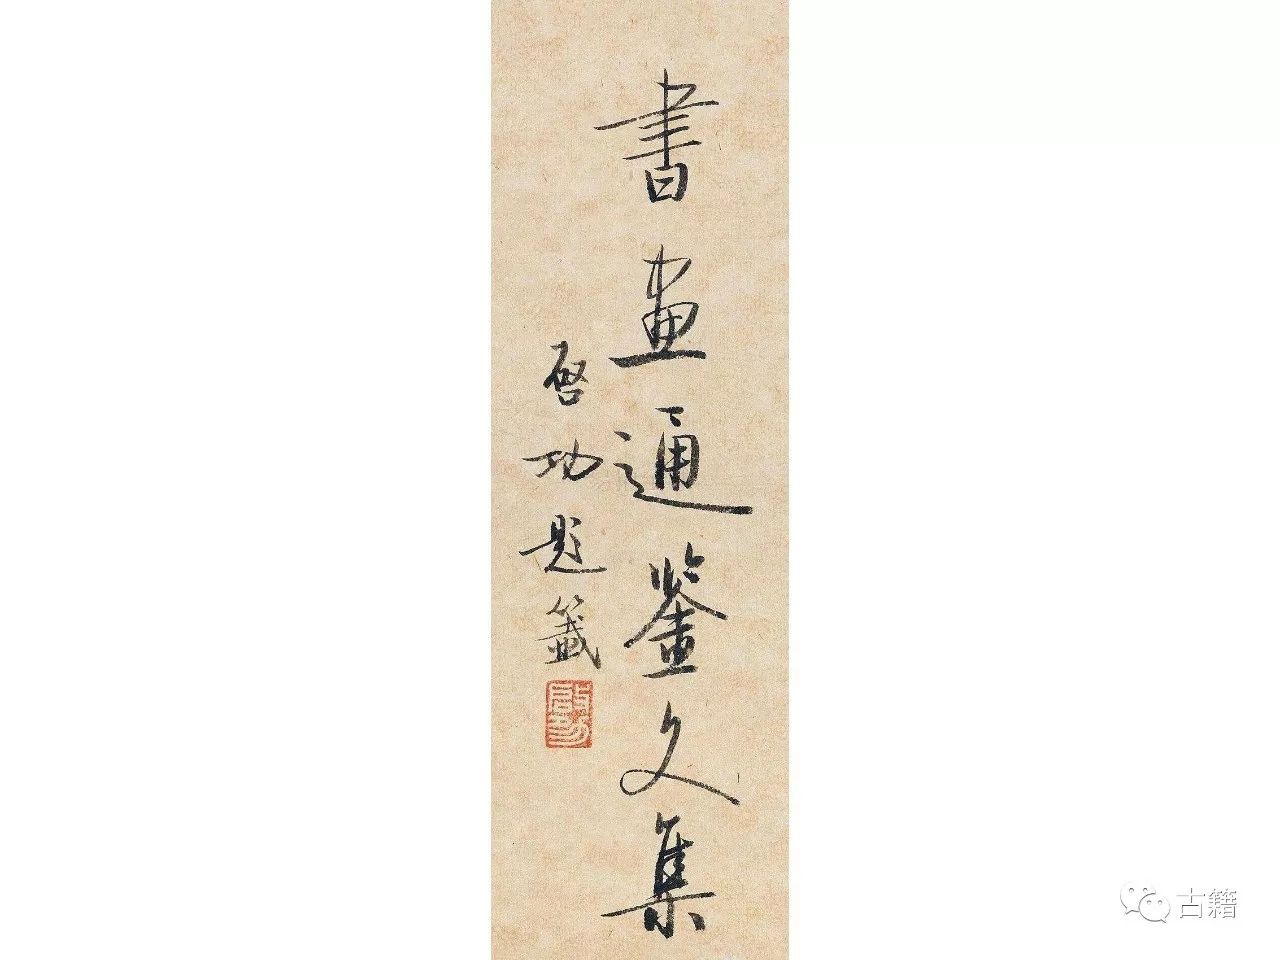 書画通鉴文集
啓功題籤
古籍